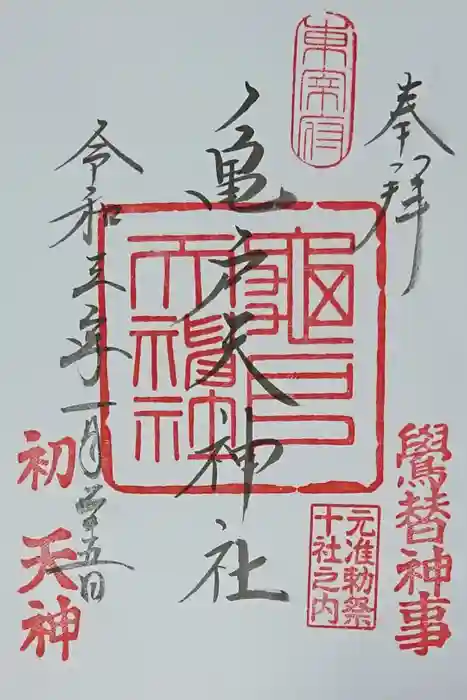 奉拝
東宰府
鷽替神事
元准勅祭
十社之内
亀戸天神社
令和三年一月廿五日
初天神